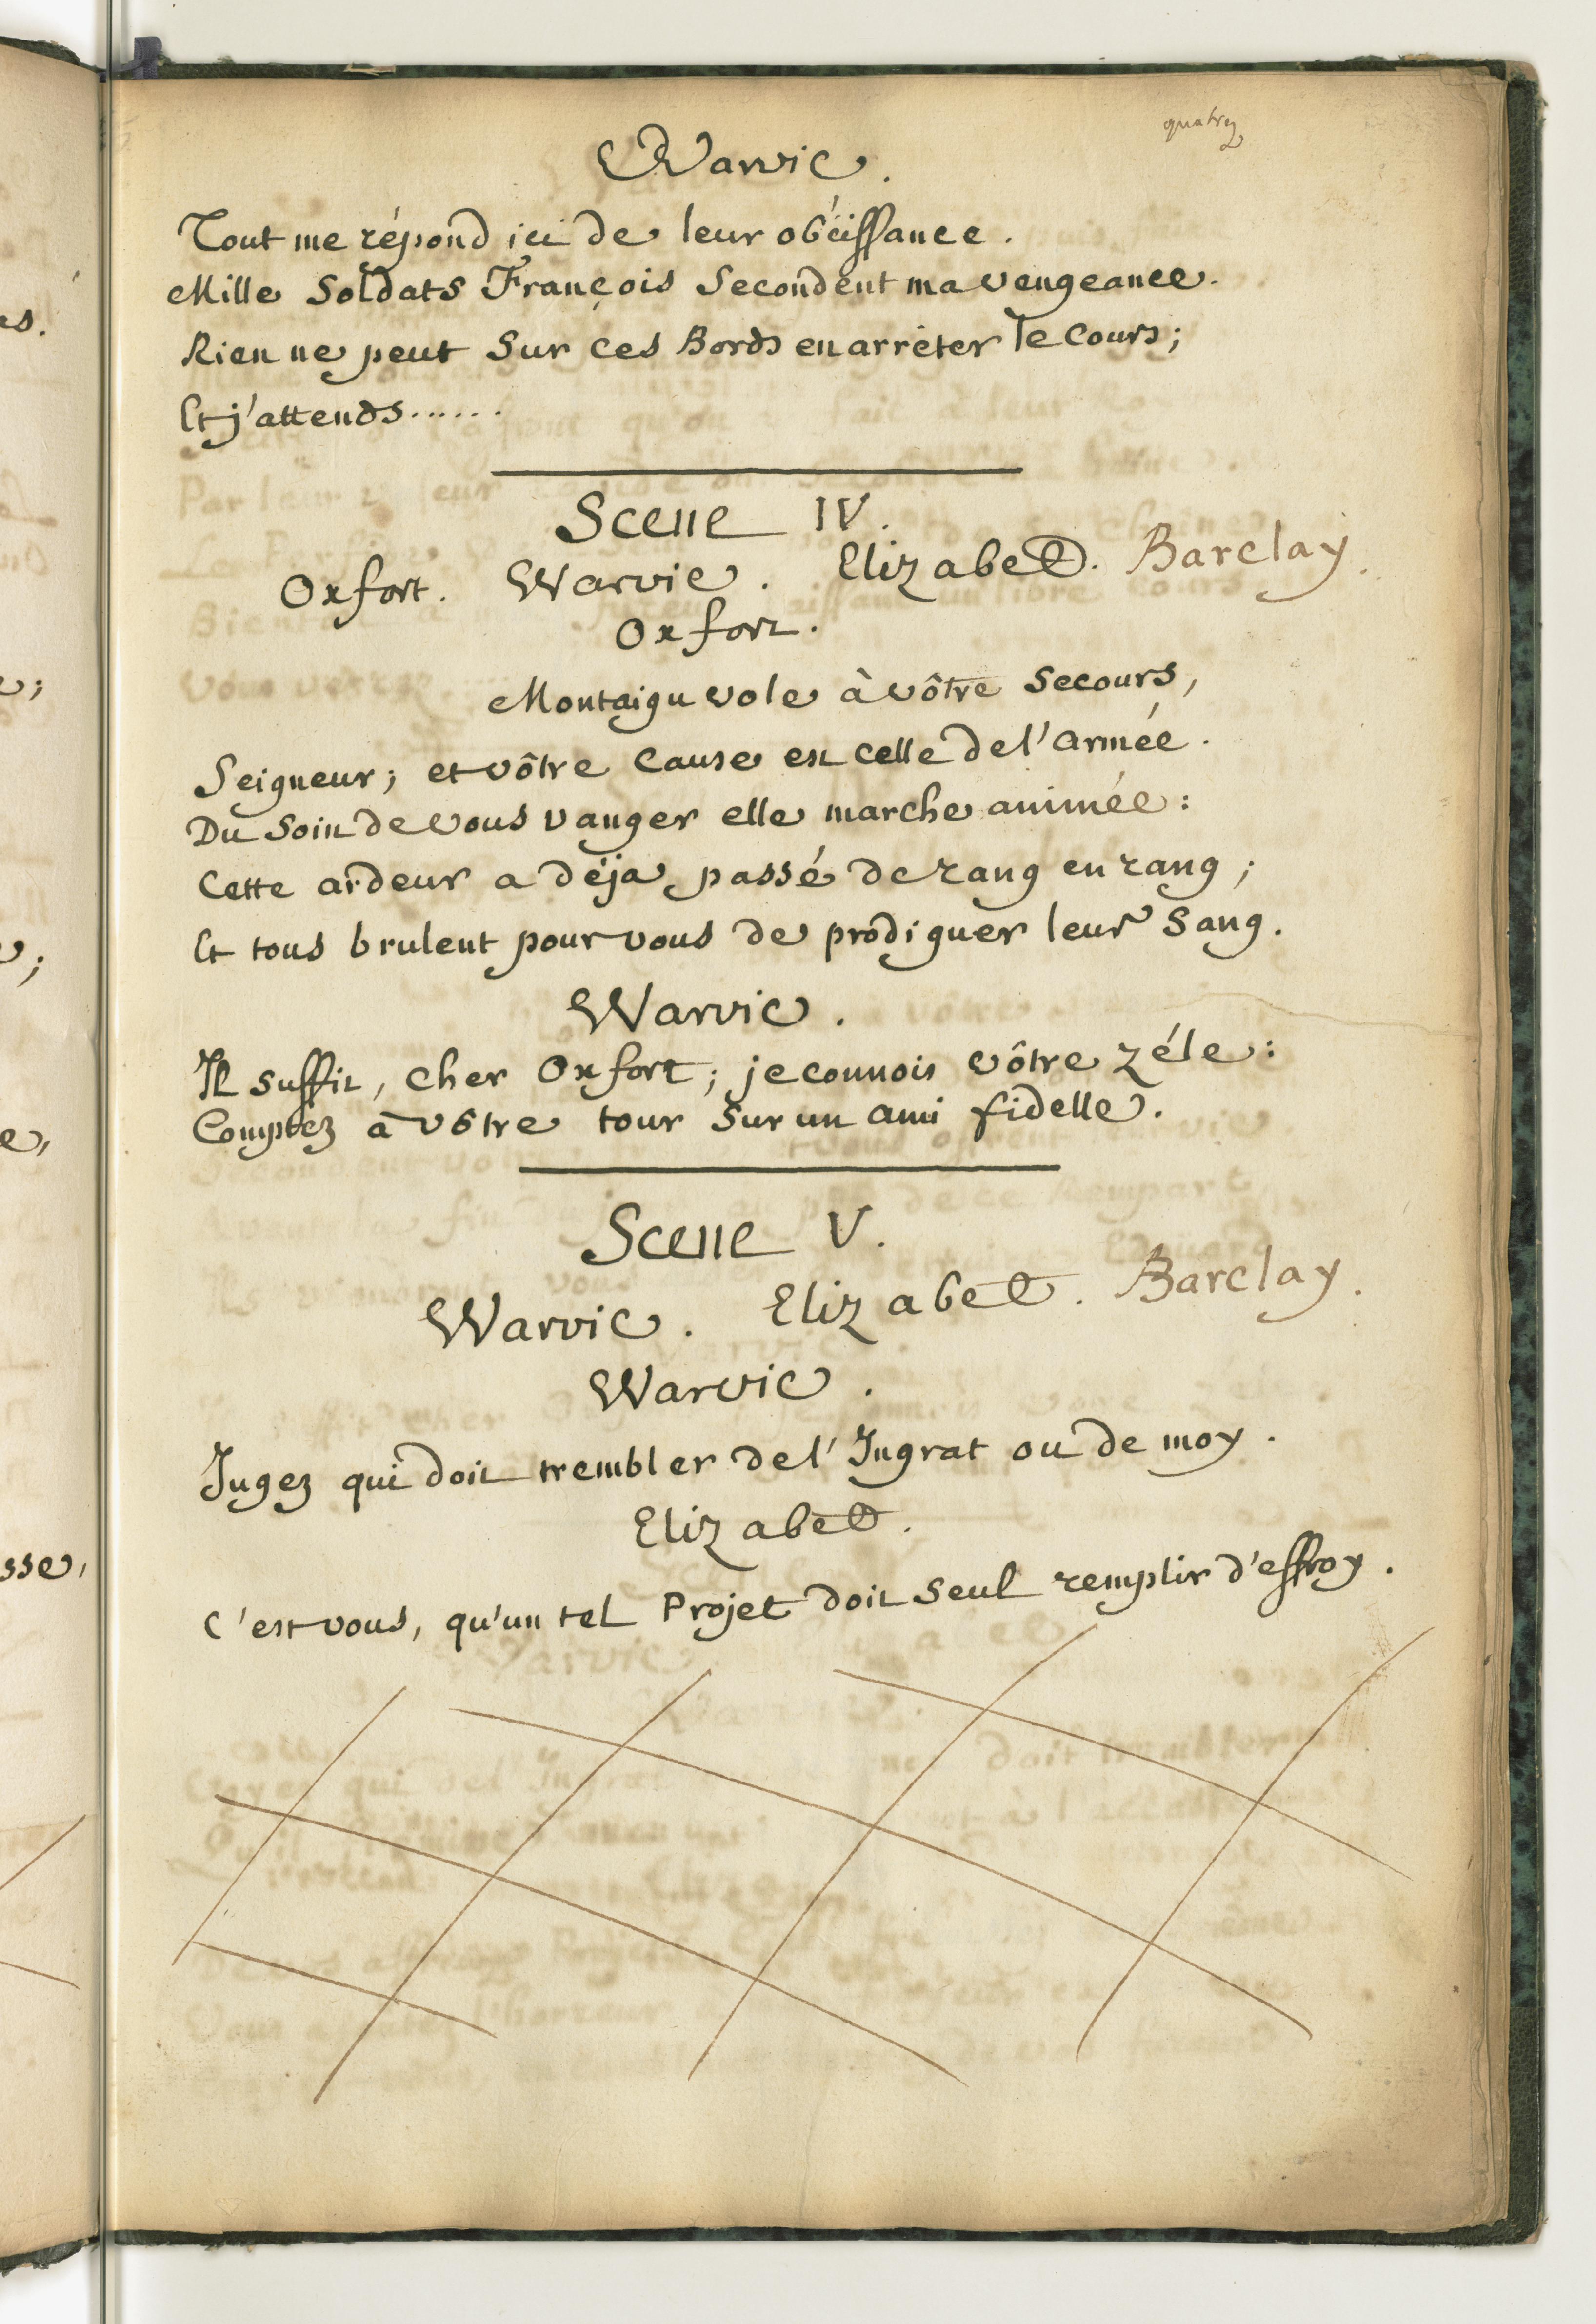 Warvic.
Tout me répond ici de leur obéissance.
Mille Soldats François Secondent ma vengeance.
Rien ne peut Sur ces Bords en arrêter le Cours;
Et j'attends......
Scene IV.
Oxfort. Warvic. Elizabet. Barclay.
Oxfort.
Montaigu vole à vôtre Secours,
Seigneur; et vôtre Cause est celle de l'armée.
Du Soin de vous vanger elle marche animée:
Cette ardeur a déja passé de rang en rang;
Et tous brulent pour vous de prodiguer leur Sang.
Warvic.
Il suffit, cher Oxfort; je connois vôtre zéle:
Comptez à vôtre tour Sur un ami fidelle.
Scene V.
Warvic. Elizabet. Barclay.
Warvic.
Jugez qui doit trembler de l'Ingrat ou de moy.
Elizabet.
C'est vous, qu'un tel Projet doit Seul remplir d'effroy.